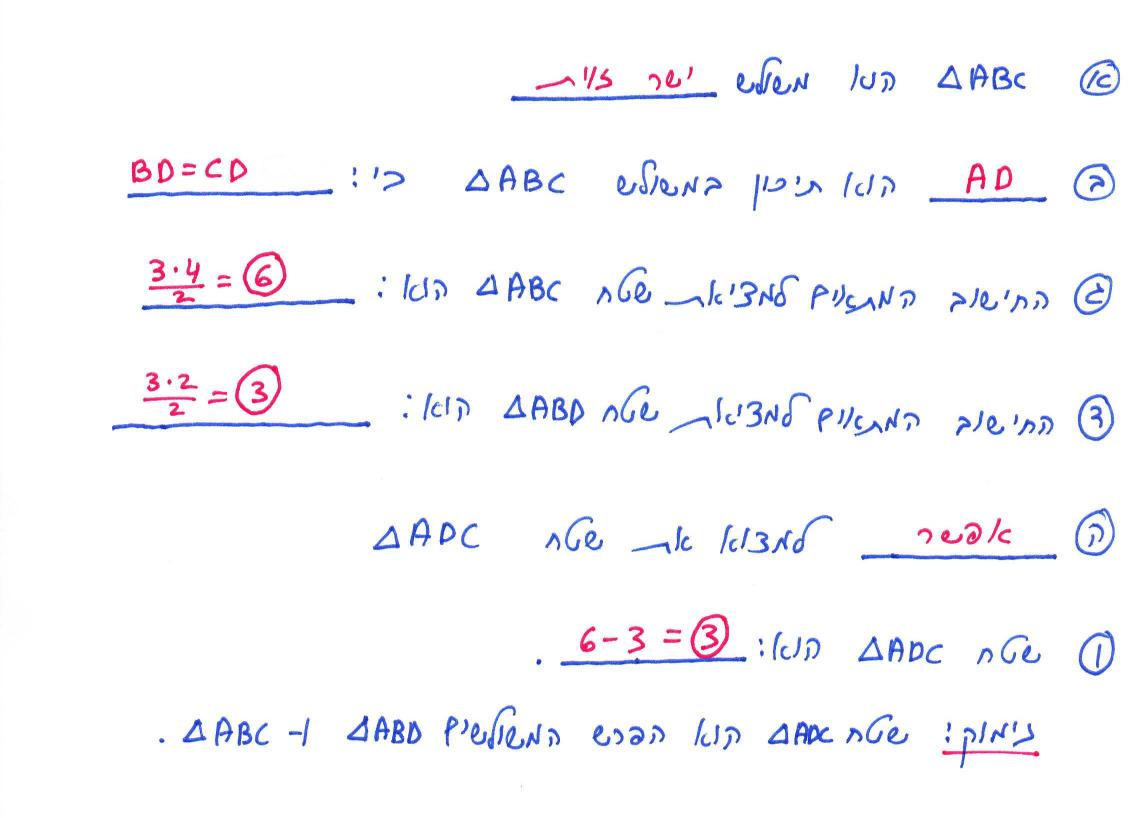 א ΔABC הוא משולש ישר זווית
ב AD הוא תיכון במשולש ΔABC כי: BD=CD
ג החישוב המתאים למציאת שטח ΔABC הוא: 3·4/2 = 6
ד החישוב המתאים למציאת שטח ΔABD הוא: 3·2/2 = 3
ה אפשר למצוא את שטח ΔADC
ו שטח ΔADC הוא: 6-3 = 3 .
נימוק: שטח ΔADC הוא הפרש המשולשים ΔABD ו- ΔABC .